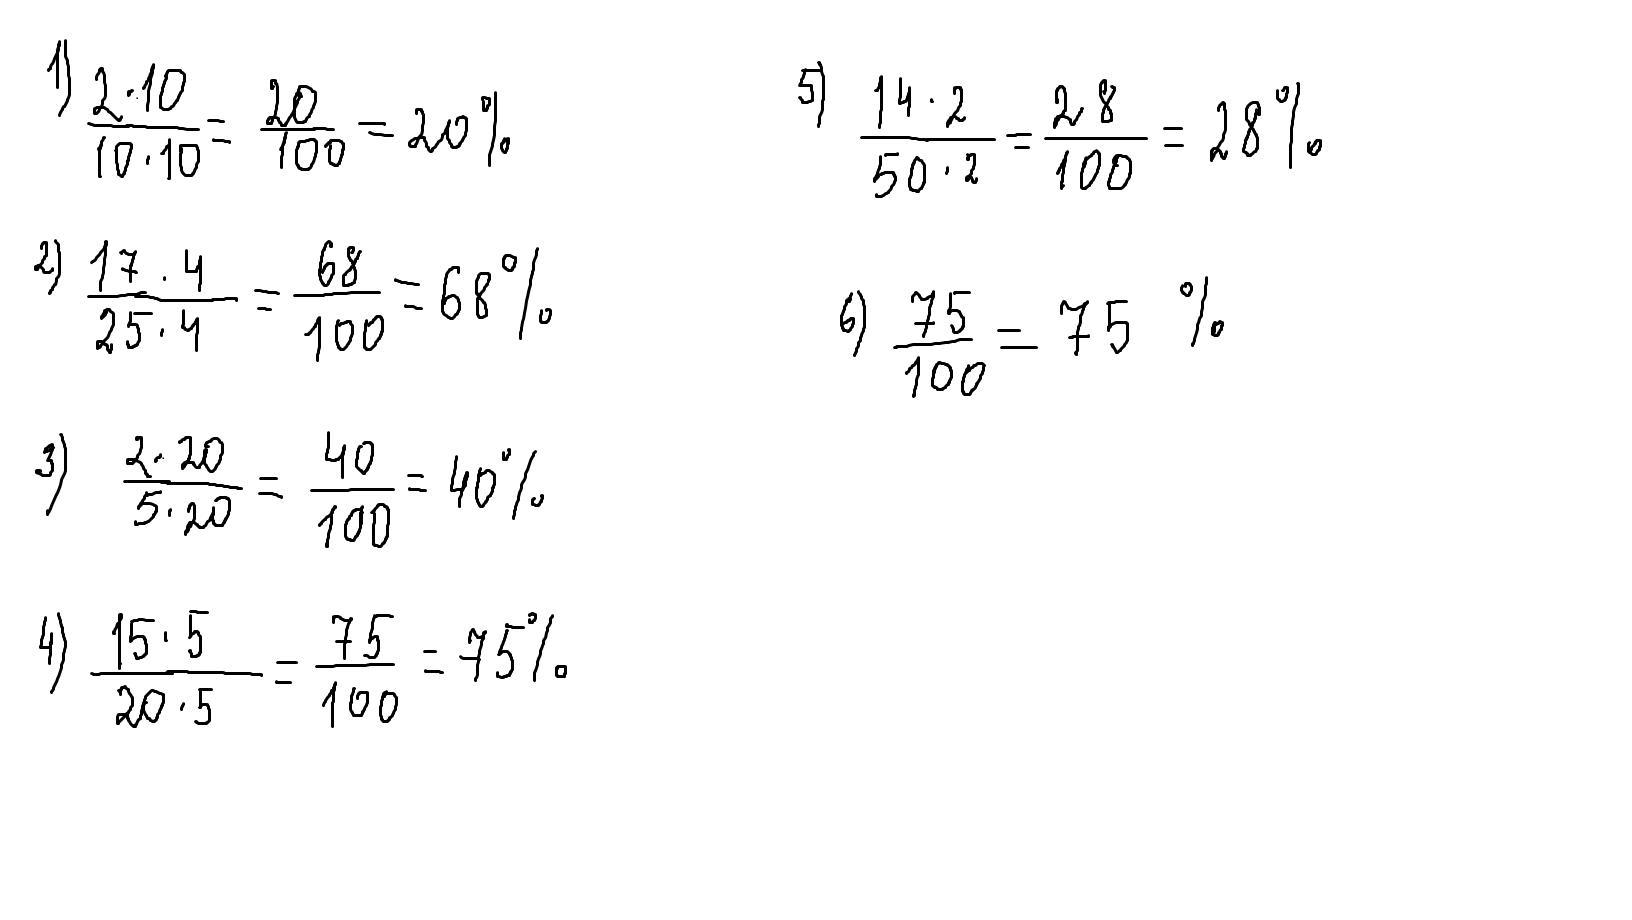 1) 2·10/10·10 = 20/100 = 20%
2) 17·4/25·4 = 68/100 = 68%
3) 2·20/5·20 = 40/100 = 40%
4) 15·5/20·5 = 75/100 = 75%
5) 14·2/50·2 = 28/100 = 28%
6) 75/100 = 75%